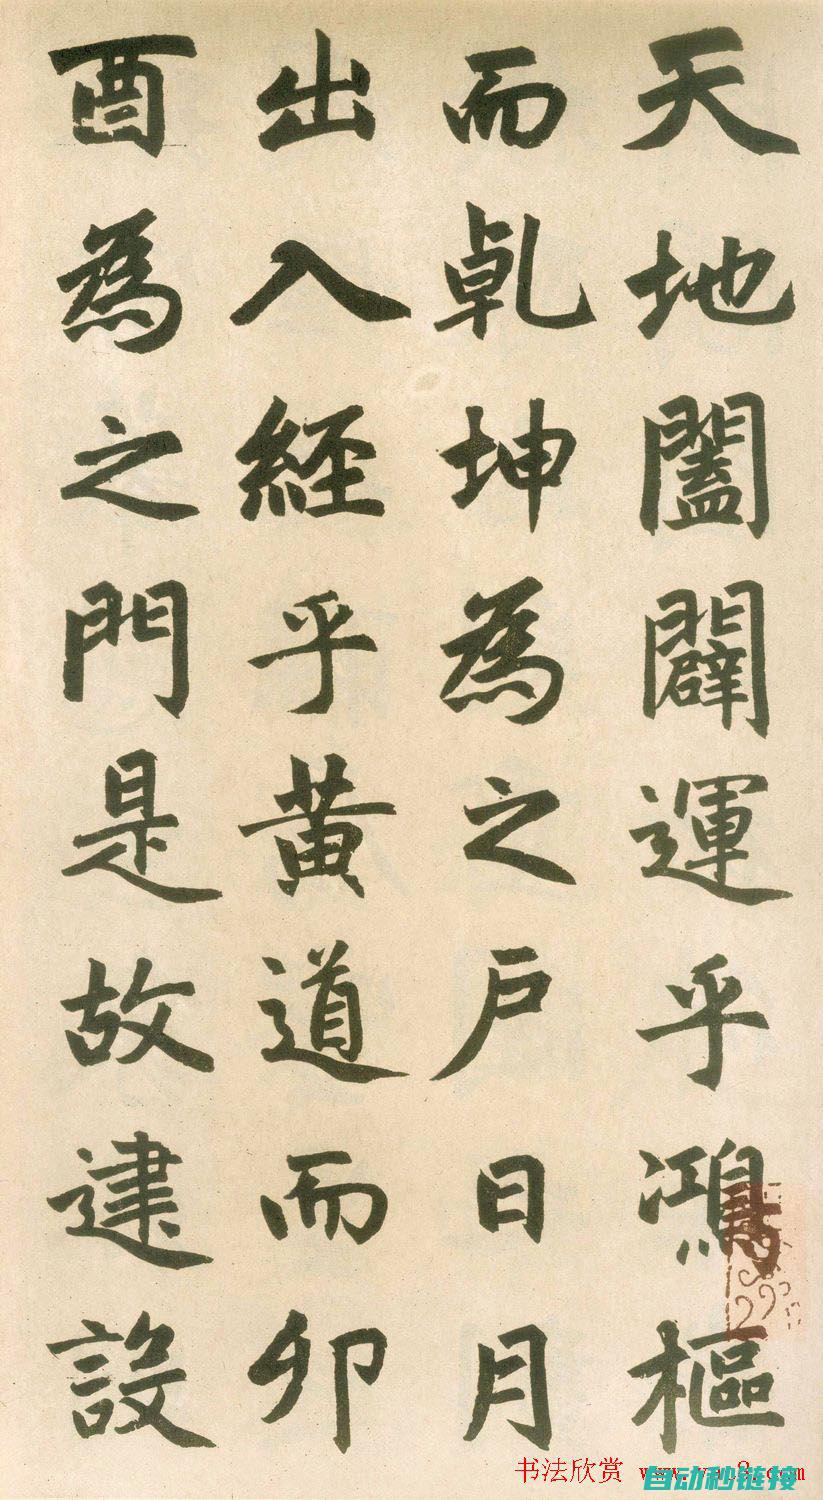 天地闔闢運乎鴻樞
而乹坤為之户日月
出入經乎黄道而卯
酉為之門是故建設
书法欣赏
自动秒链接